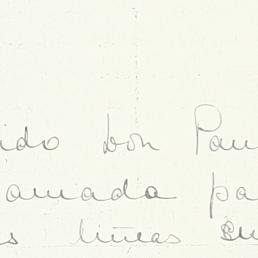 ido Don Pau
amada pa
s líneas su